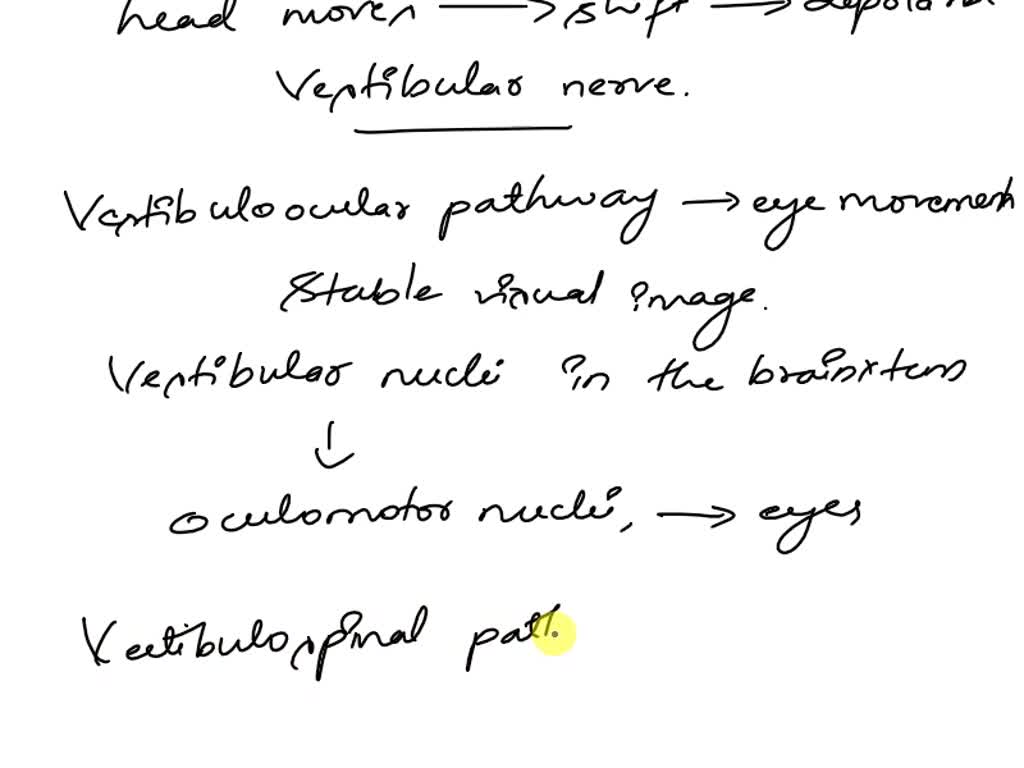 head moves → shift → depolari
Vestibular nerve.
Vestibuloocular pathway → eye movement
Stable visual image.
Vestibular nuclei in the brainstem
↓
oculomotor nuclei, → eyes
Vestibulospinal path